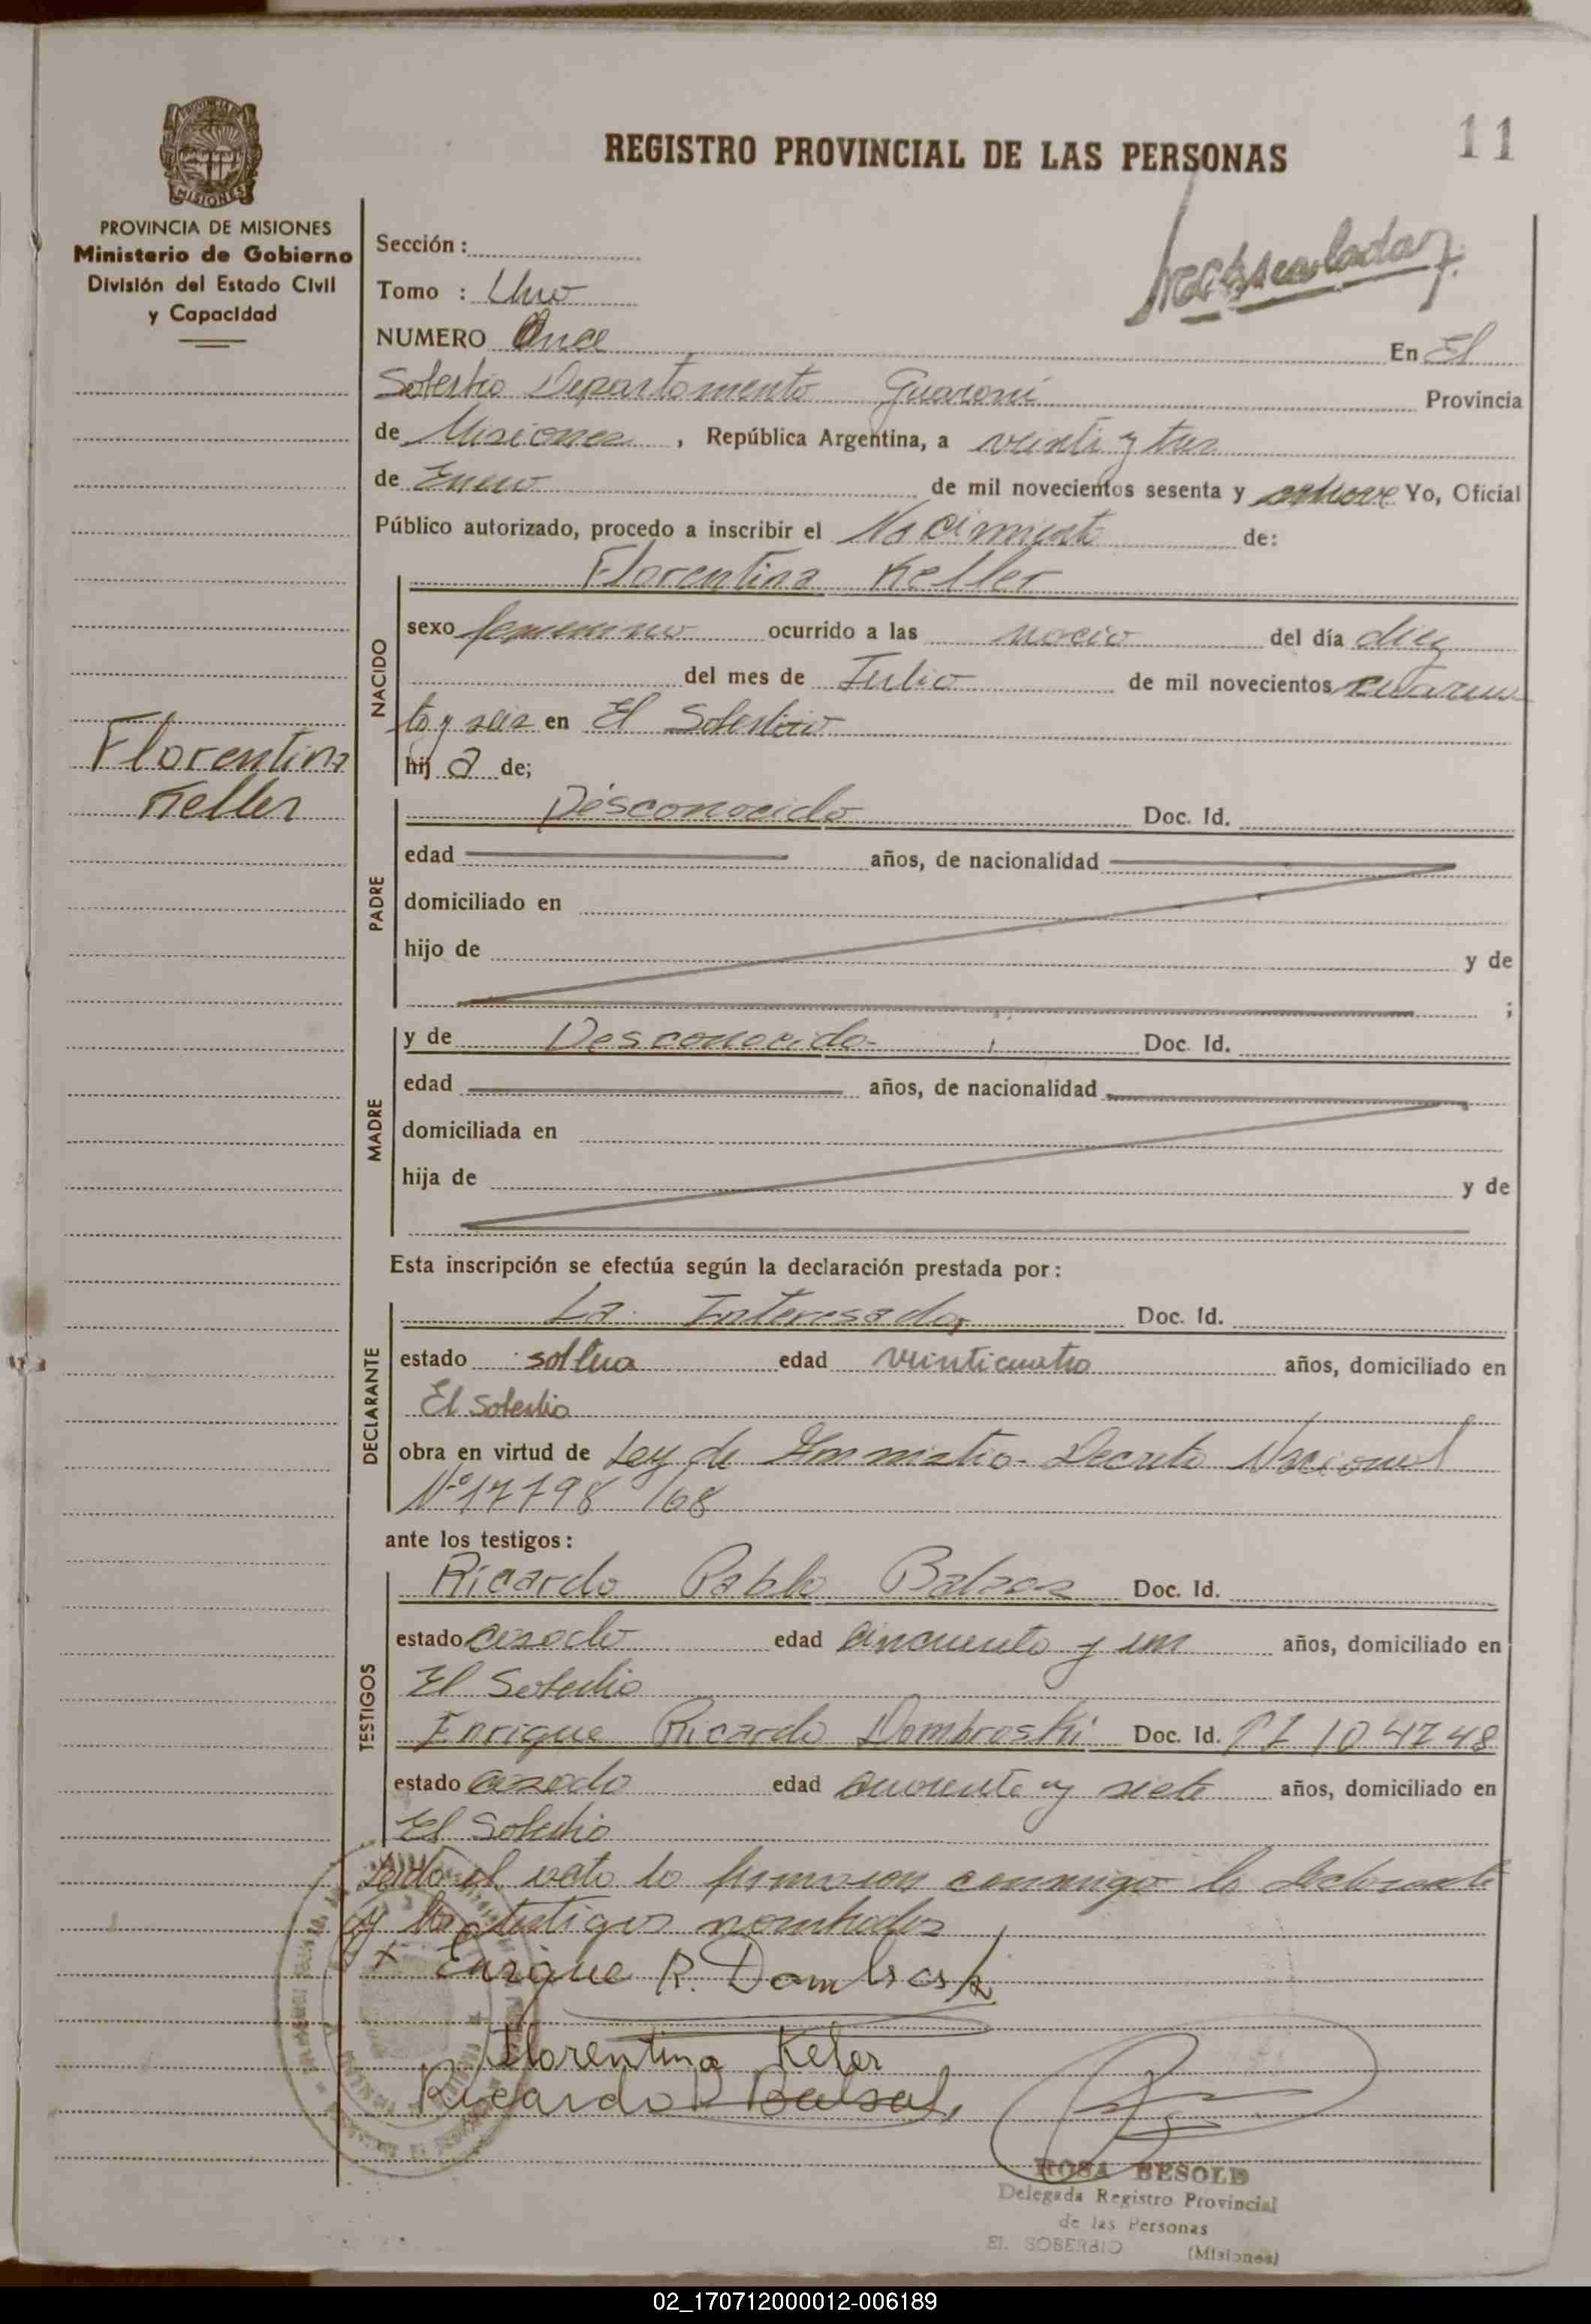 11
REGISTRO PROVINCIAL DE LAS PERSONAS
MISIONES
PROVINCIA DE MISIONES
Ministerio de Gobierno
División del Estado Civil
y Capacidad
Sección :
Tomo : Uno
NUMERO Once En El
Soberbio Departamento Guaraní Provincia
de Misiones , República Argentina, a veinti y tres
de Enero de mil novecientos sesenta y nueve Yo, Oficial
Público autorizado, procedo a inscribir el Nacimiento de:
Florentina Keller
NACIDO
sexo femenino ocurrido a las del día diez
del mes de Julio de mil novecientos cuaren
ta y seis en El Soberbio
Florentina
Keller
hij a de;
PADRE
Desconocido Doc. Id.
edad años, de nacionalidad
domiciliado en
hijo de y de
;
MADRE
y de Desconocido- Doc. Id.
edad años, de nacionalidad
domiciliada en
hija de y de
Esta inscripción se efectúa según la declaración prestada por :
DECLARANTE
La Interesada, Doc. Id.
estado soltera edad veinticuatro años, domiciliado en
El Soberbio
obra en virtud de Ley de Decreto Nacional
Nº 17798/68
ante los testigos :
TESTIGOS
Ricardo Pablo Doc. Id.
estado casado edad cincuenta y un años, domiciliado en
El Soberbio
Enrique Ricardo Dombroski Doc. Id. 1047248
estado casado edad cuarenta y siete años, domiciliado en
El Soberbio
Leido el acta la firmaron conmigo la declarante
y los testigos nombrados
Enrique R. Dombroski
Florentina Keler
Ricardo P.
ROSA BESOLD
Delegada Registro Provincial
de las Personas
EL SOBERBIO (Misiones)
02_170712000012-006189